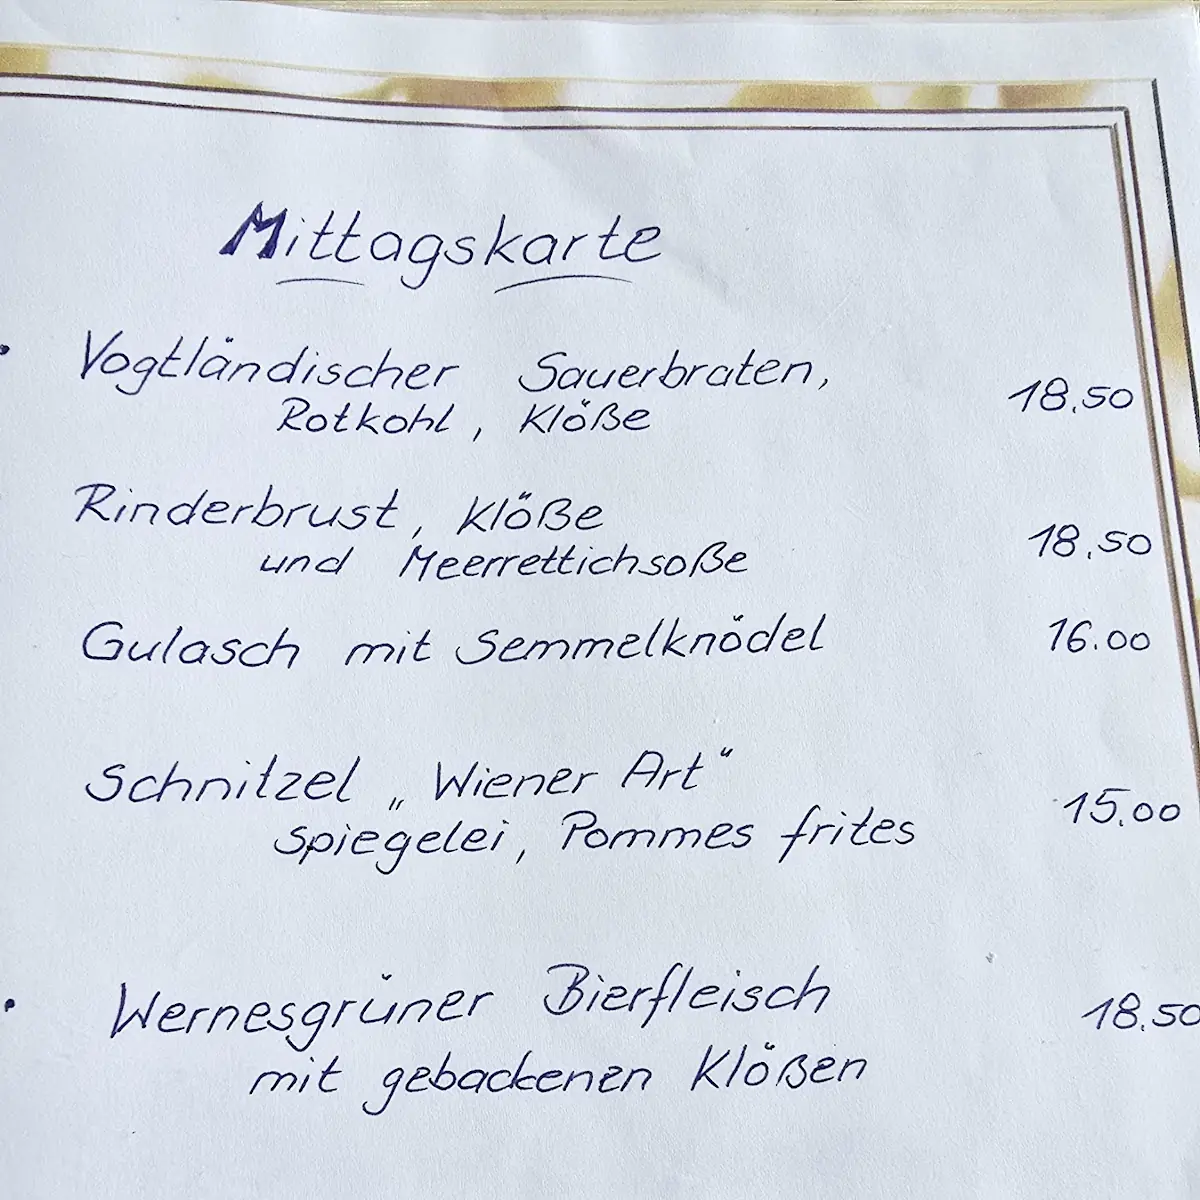 Mittagskarte
• Vogtländischer Sauerbraten,
Rotkohl, Klöße 18.50
Rinderbrust, Klöße
und Meerrettichsoße 18.50
Gulasch mit Semmelknödel 16.00
Schnitzel „Wiener Art“
Spiegelei, Pommes frites 15.00
• Wernesgrüner Bierfleisch 18.50
mit gebackenen Klößen